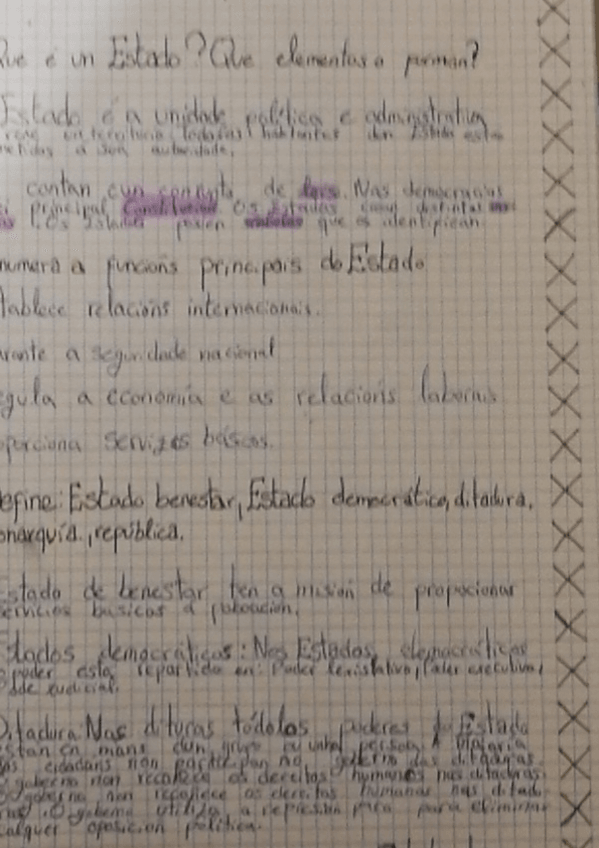 ue é un Estado? Que elementos o forman?
Estado é a unidade política e administrativa
territorio, todos habitantes dun Estado están
metidos á súa autoridade.
contan cun conxunto de leis. Nas democracias
principal Constitución Os Estados distintas
Os Estados posúen símbolos que os identifican.
numera a funcións principais do Estado
tablece relacións internacionais.
arante a seguridade nacional
egula a economía e as relacións laborais
oporciona servizos básicos.
efine: Estado benestar, Estado democrático, ditadura,
onarquía, república.
Estado de benestar ten a misión de propocionar
servicios básicos á poboación.
Estados democráticos: Nos Estados democráticos
poder está repartido en: Poder lexislativo, Poder executivo,
xudicial.
Ditadura: Nas dituras tódolos poderes do Estado
están en mans dun grupo ou unha persoa. A maioría
dos cidadáns non participan no goberno das ditaduras.
goberno non recoñece os dereitos humanos nas ditaduras.
O goberno non recoñece os dereitos humanos nas ditadu-
ras. O goberno utiliza a represión para para eliminar
calquer oposición política.